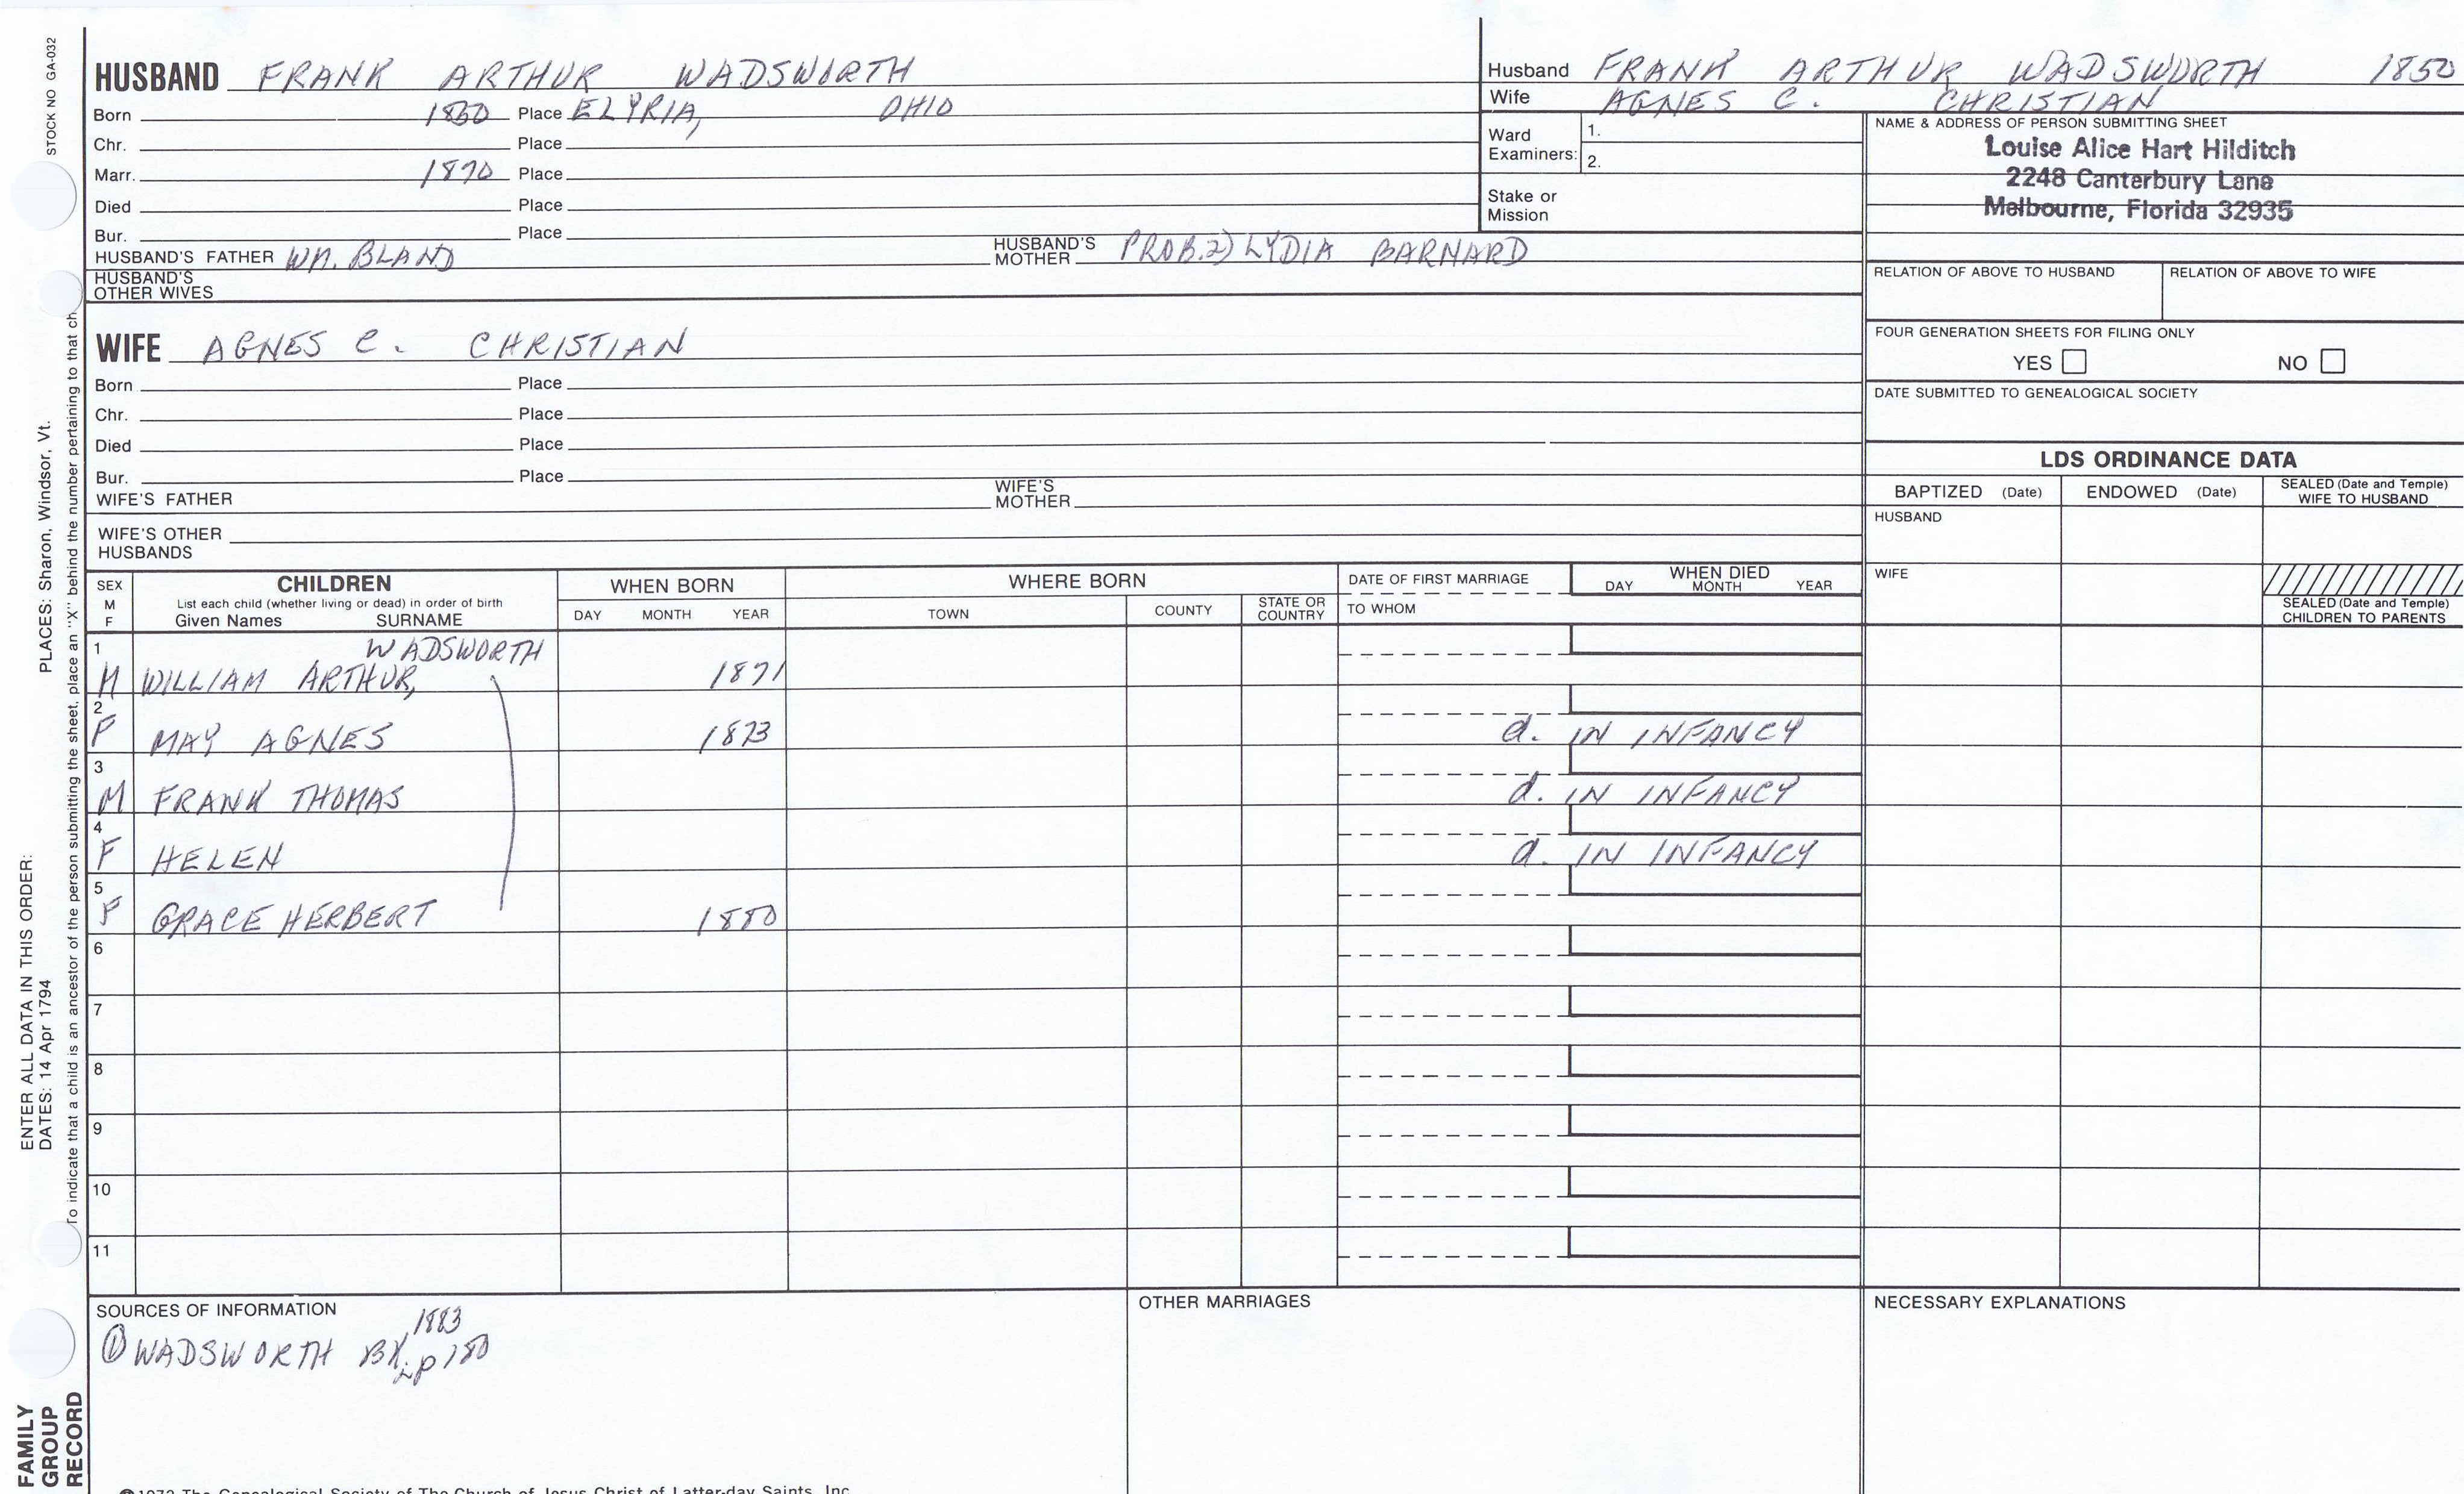 STOCK NO GA-032
PLACES: Sharon, Windsor, Vt.
ENTER ALL DATA IN THIS ORDER:
DATES: 14 Apr 1794
To indicate that a child is an ancestor of the person submitting the sheet, place an "X" behind the number pertaining to that ch
FAMILY
GROUP
RECORD
HUSBAND FRANK ARTHUR WADSWORTH
Born 1850 Place ELYRIA, OHIO
Chr. Place
Marr. 1870 Place
Died Place
Bur. Place
HUSBAND'S FATHER WM. BLAND HUSBAND'S MOTHER PROB.2) LYDIA BARNARD
HUSBAND'S
OTHER WIVES
WIFE AGNES C. CHRISTIAN
Born Place
Chr. Place
Died Place
Bur. Place
WIFE'S FATHER WIFE'S MOTHER
WIFE'S OTHER
HUSBANDS
Husband FRANK ARTHUR WADSWORTH 1850
Wife AGNES C. CHRISTIAN
Ward
Examiners: 1.
2.
Stake or
Mission
NAME & ADDRESS OF PERSON SUBMITTING SHEET
Louise Alice Hart Hilditch
2248 Canterbury Lane
Melbourne, Florida 32935
RELATION OF ABOVE TO HUSBAND RELATION OF ABOVE TO WIFE
FOUR GENERATION SHEETS FOR FILING ONLY
YES NO
DATE SUBMITTED TO GENEALOGICAL SOCIETY
LDS ORDINANCE DATA
BAPTIZED (Date) ENDOWED (Date) SEALED (Date and Temple)
WIFE TO HUSBAND
HUSBAND
WIFE
SEALED (Date and Temple)
CHILDREN TO PARENTS
SEX
M
F
CHILDREN
List each child (whether living or dead) in order of birth
Given Names SURNAME
WHEN BORN
DAY MONTH YEAR
WHERE BORN
TOWN COUNTY STATE OR
COUNTRY
DATE OF FIRST MARRIAGE
TO WHOM
WHEN DIED
DAY MONTH YEAR
1 WADSWORTH
M WILLIAM ARTHUR, 1871
2
F MAY AGNES 1873 d. IN INFANCY
3
M FRANK THOMAS d. IN INFANCY
4
F HELEN d. IN INFANCY
5
F GRACE HERBERT 1880
6
7
8
9
10
11
SOURCES OF INFORMATION
1883
① WADSWORTH BK. p180
OTHER MARRIAGES
NECESSARY EXPLANATIONS
©1972 The Genealogical Society of The Church of Jesus Christ of Latter-day Saints, Inc.